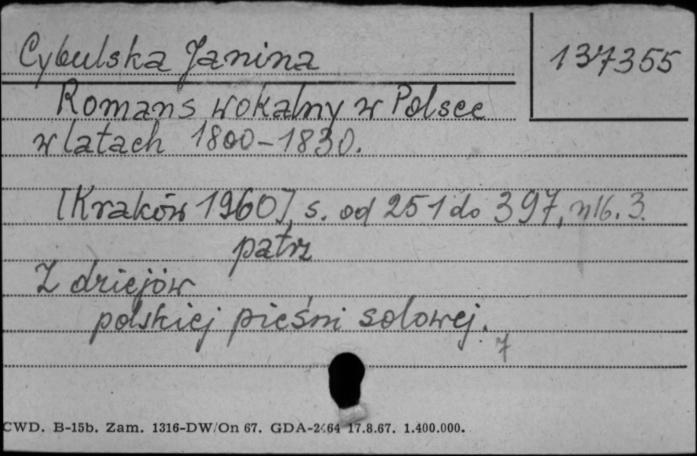 Cybulska Janina
137355
Romans wokalny w Polsce
w latach 1800-1830.
[Kraków 1960], s. od 251 do 397, 3.
patrz
Z dziejów
polskiej pieśni solowej.
7
CWD. B-15b. Zam. 1316-DW/On 67. GDA- 17.8.67. 1.400.000.